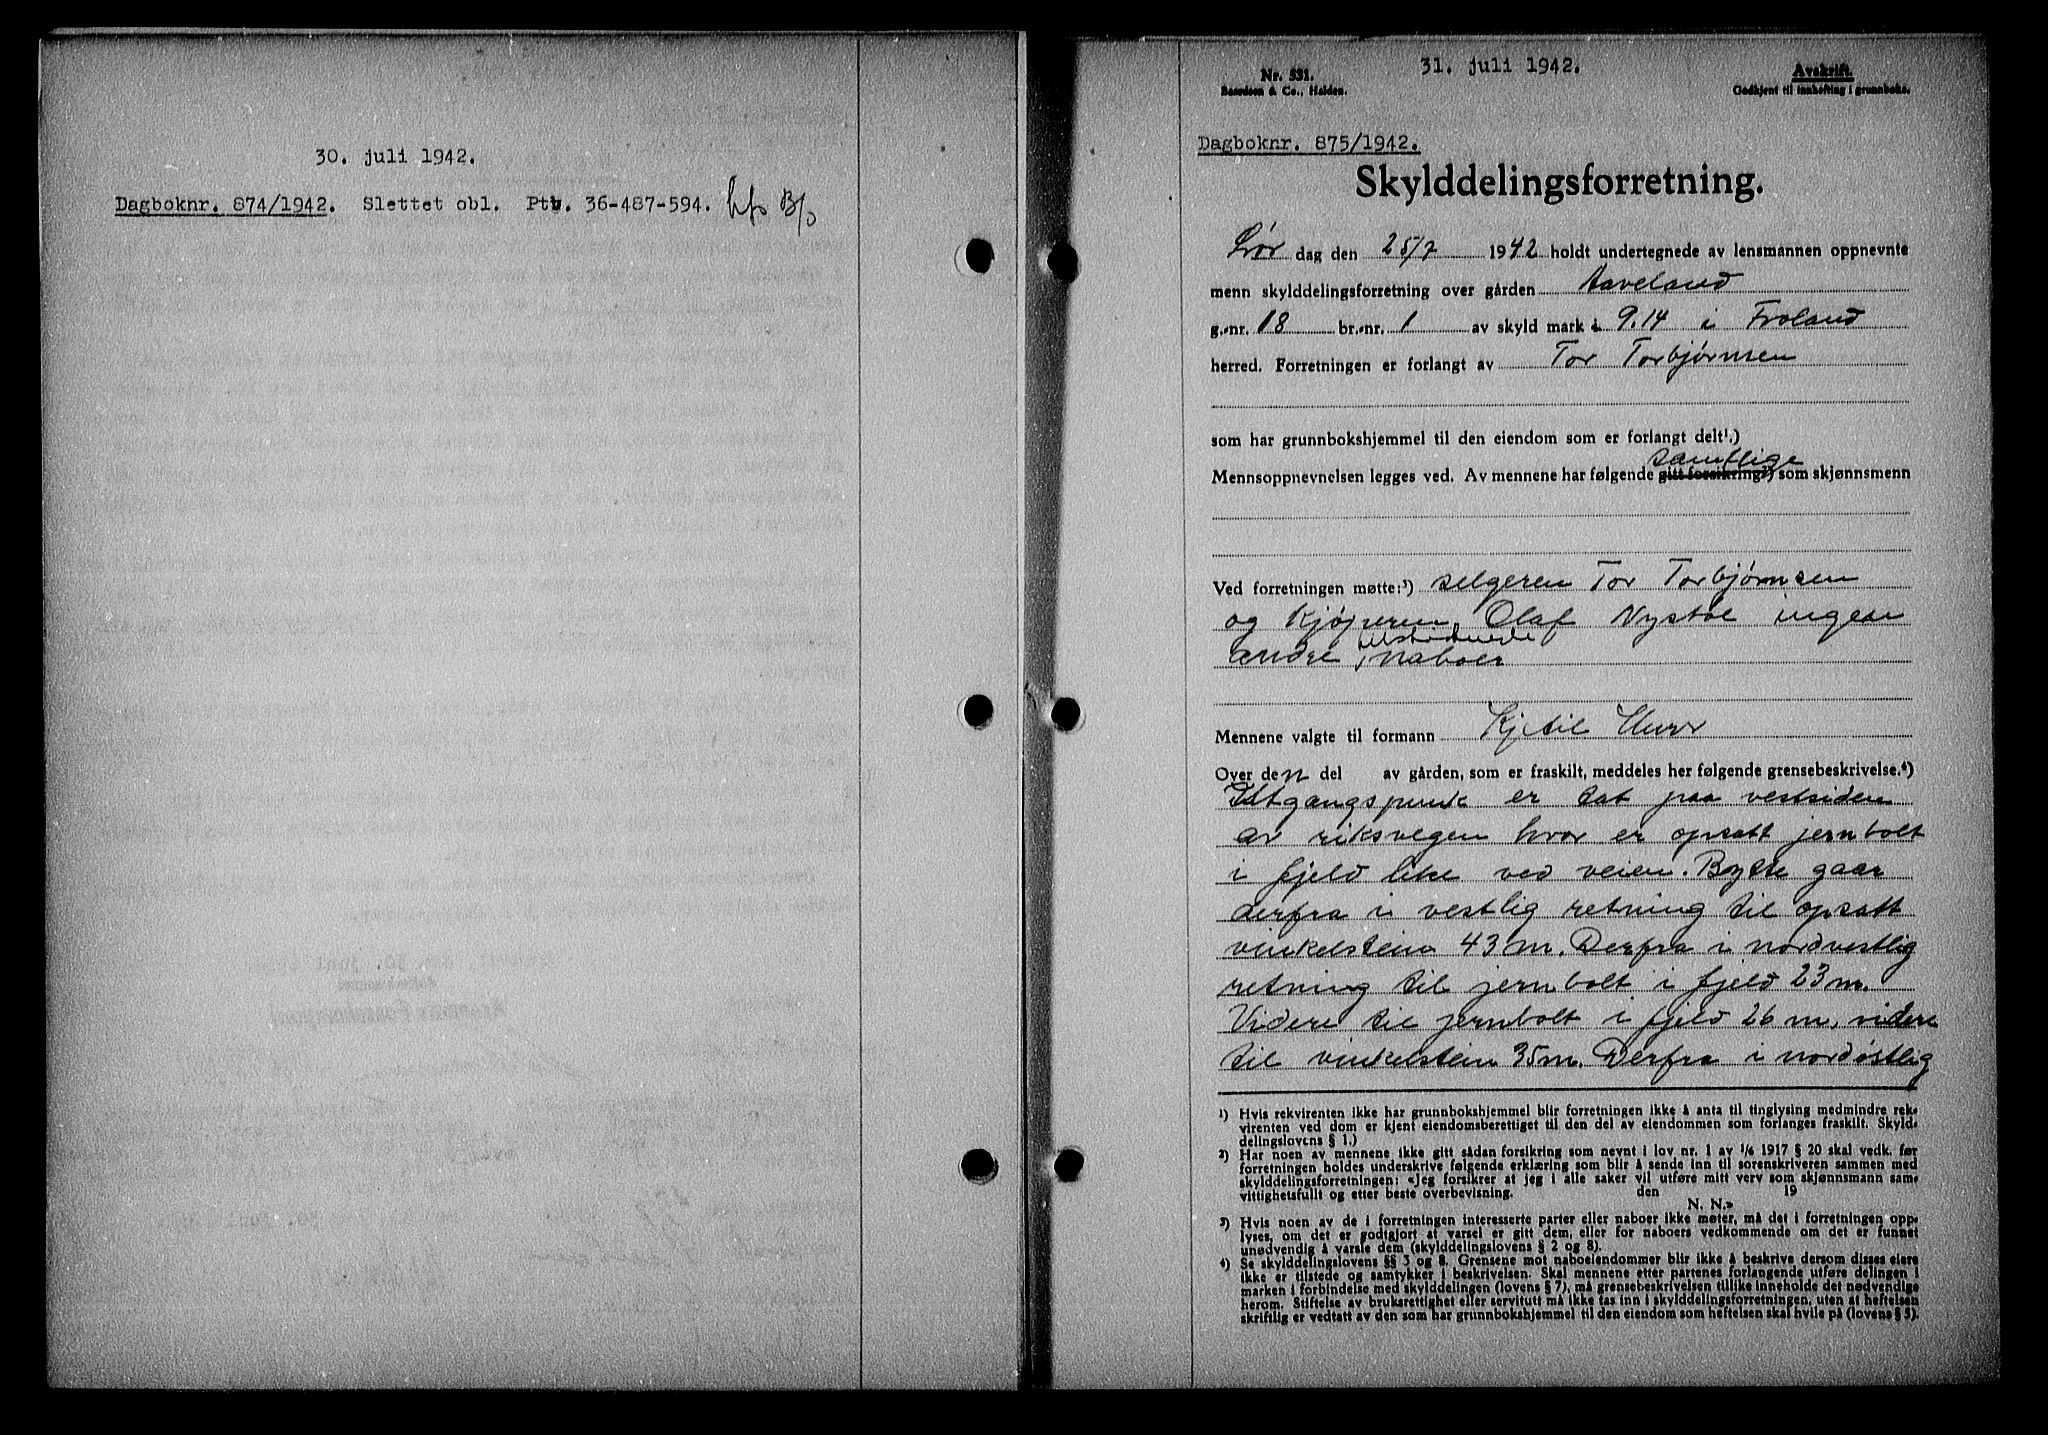 30. juli 1942.
Dagboknr. 874/1942. Slettet obl. Ptb. 36-487-594.
Nr. 531.
Baardsen & Co., Halden.
31. juli 1942.
Avskrift.
Godkjent til innhefting i grunnboka.
Dagboknr. 875/1942.
Skylddelingsforretning.
Lør dag den 25/7 1942 holdt undertegnede av lensmannen oppnevnte
menn skylddelingsforretning over gården Aaveland
g.-nr. 18 br.-nr. 1 av skyld mark 9.14 i Froland
herred. Forretningen er forlangt av Tor Torbjørnsen
som har grunnbokshjemmel til den eiendom som er forlangt delt¹.)
samtlige
Mennsoppnevnelsen legges ved. Av mennene har følgende gitt forsikring²) som skjønnsmenn
Ved forretningen møtte:³) selgeren Tor Torbjørnsen
og Kjøperen Olaf Nystøl ingen
tilstødende
andre naboer
Mennene valgte til formann Kjetil
Over den del av gården, som er fraskilt, meddeles her følgende grensebeskrivelse.⁴)
Utgangspunk er tat paa vestsiden
av riksvegen hvor er opsatt jernbolt
i fjeld like ved veien. Bytte gaar
derfra i vestlig retning til opsatt
vinkelstein 43 m. Derfra i nordvestlig
retning til jernbolt i fjeld 23 m.
Videre til jernbolt i fjeld 26 m, videre
til vinkelstein 35 m. Derfra i nordøstlig
¹) Hvis rekvirenten ikke har grunnbokshjemmel blir forretningen ikke å anta til tinglysing medmindre rek-
virenten ved dom er kjent eiendomsberettiget til den del av eiendommen som forlanges fraskilt. Skyld-
delingslovens § 1.)
²) Har noen av mennene ikke gitt sådan forsikring som nevnt i lov nr. 1 av 1/6 1917 § 20 skal vedk. før
forretningen holdes underskrive følgende erklæring som blir å sende inn til sorenskriveren sammen med
skylddelingsforretningen: «Jeg forsikrer at jeg i alle saker vil utføre mitt verv som skjønnsmann sam-
vittighetsfullt og etter beste overbevisning. den 19
N. N.»
³) Hvis noen av de i forretningen interesserte parter eller naboer ikke møter, må det i forretningen opp-
lyses, om det er godtgjort at varsel er gitt dem, eller for naboers vedkommende om det er funnet
unødvendig å varsle dem (skylddelingslovens § 2 og 8).
⁴) Se skylddelingslovens §§ 3 og 8. Grensene mot naboeiendommer blir ikke å beskrive dersom disses eiere
ikke er tilstede og samtykker i beskrivelsen. Skal mennene etter partenes forlangende utføre delingen i
marken i forbindelse med skylddelingen (lovens § 7), må grensebeskrivelsen tillike inneholde det nødvendige
herom. Stiftelse av bruksrettighet eller servitutt må ikke tas inn i skylddelingsforretningen, uten at heftelsen
skriftlig er vedtatt av den som har grunnbokshjemmel til den eiendom som heftelsen skal hvile på (lovens § 5).